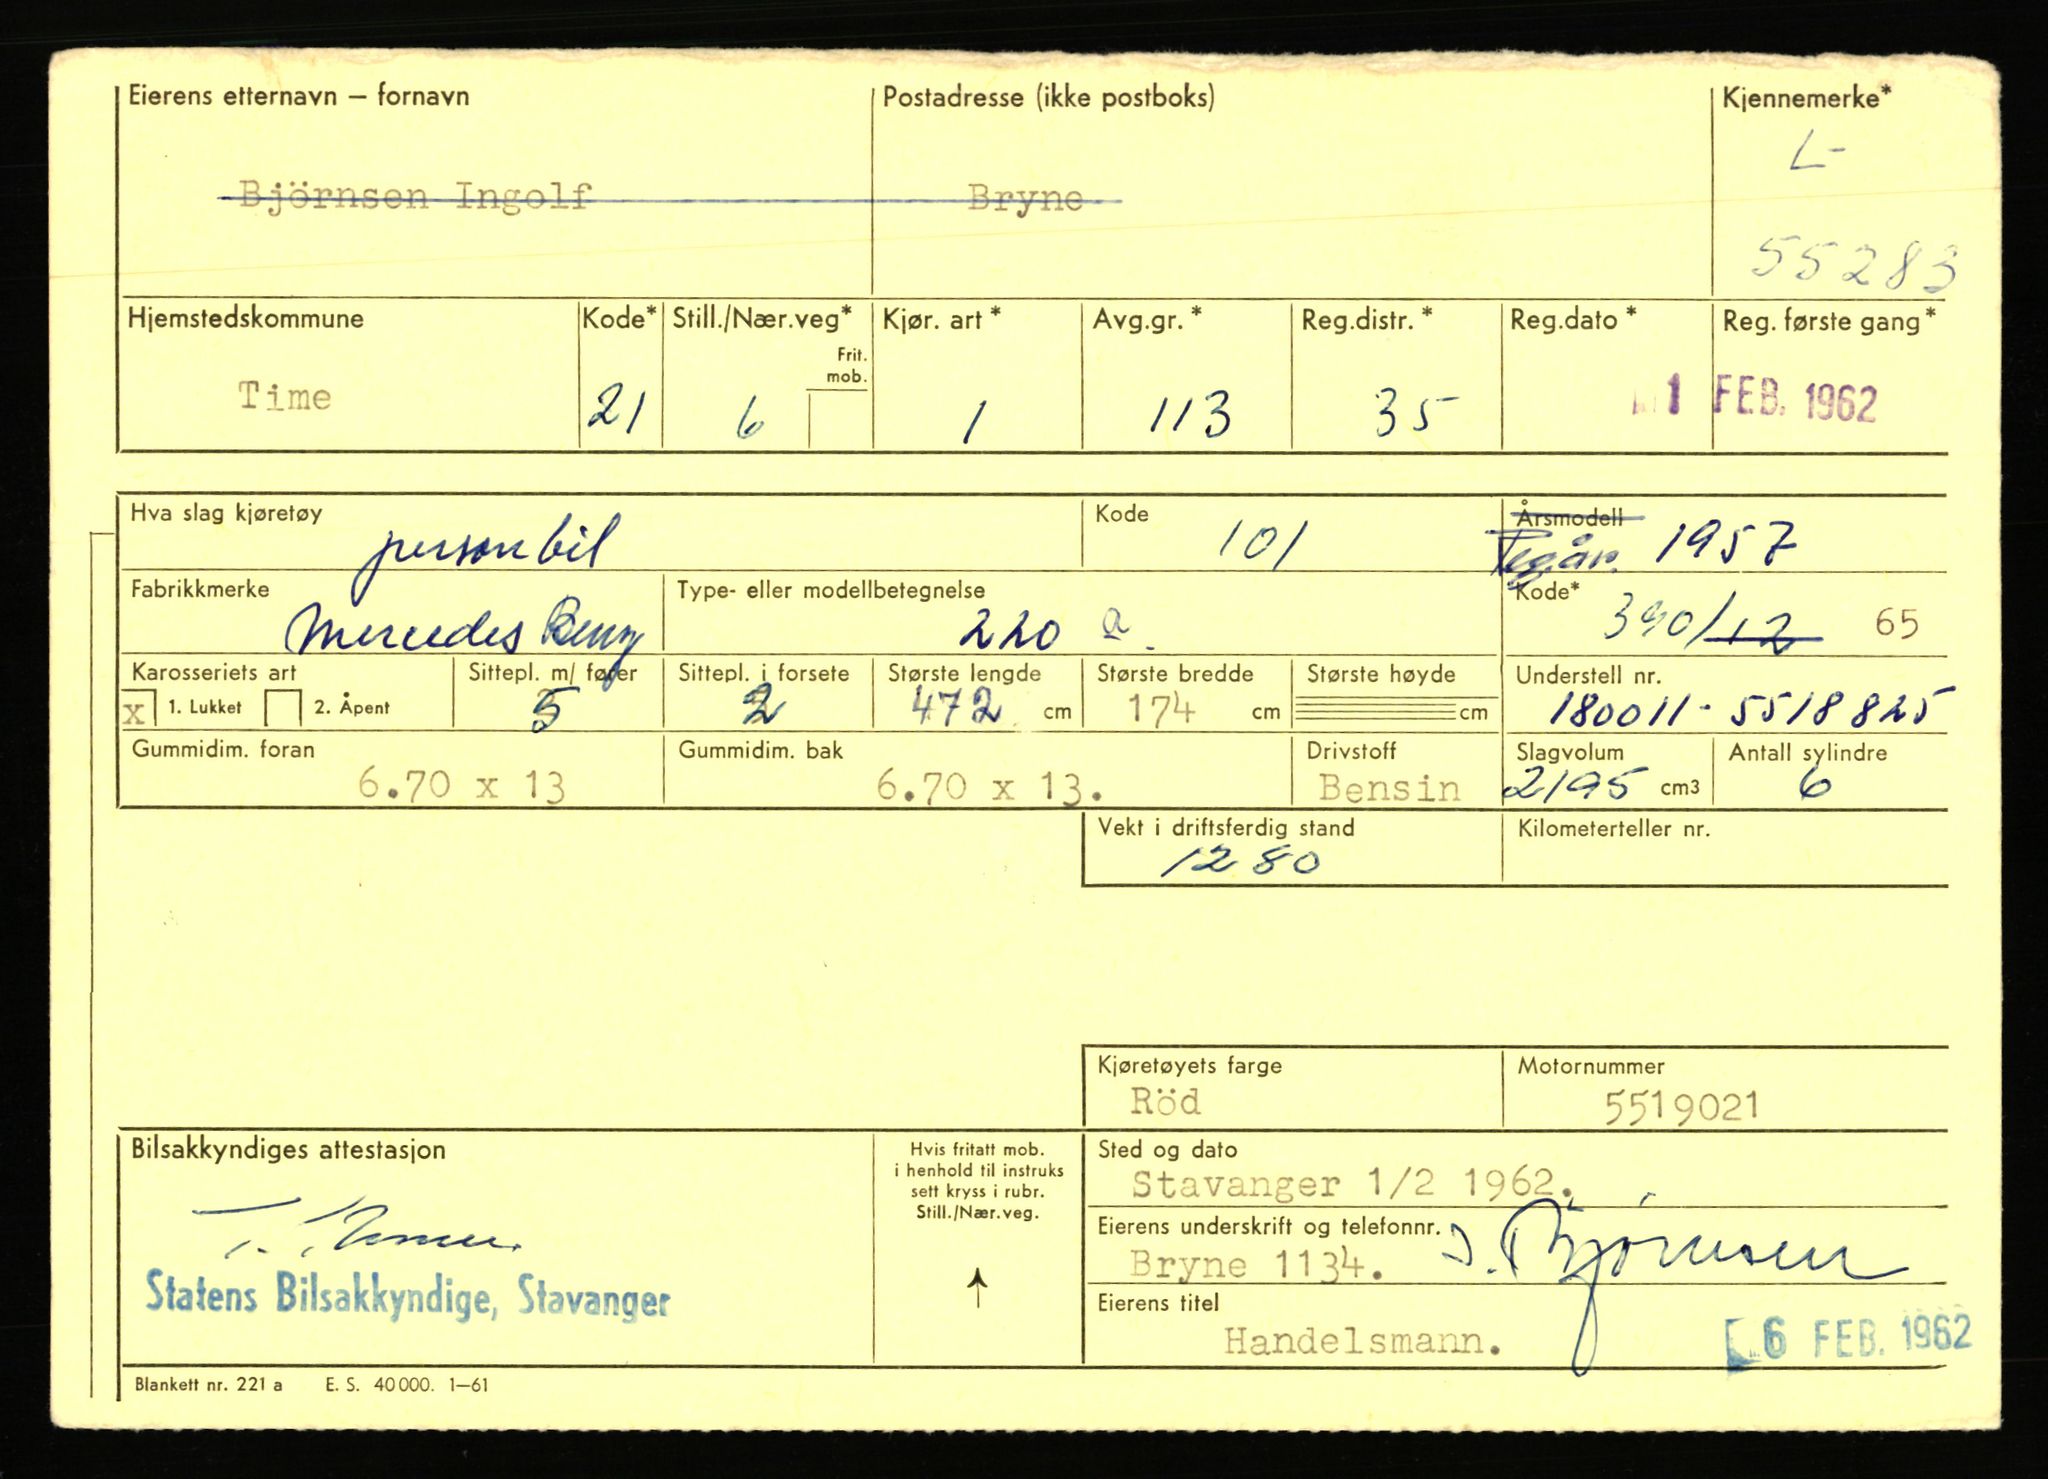 Eierens etternavn — fornavn Postadresse (ikke postboks) Kjennemerke*
L-
Björnsen Ingolf Bryne
55283
Hjemstedskommune Kode* Still./Nær.veg* Kjør. art * Avg.gr. * Reg.distr. * Reg.dato * Reg. første gang *
Frit.
mob.
Time 21 6 1 113 35 1 FEB. 1962
Hva slag kjøretøy Kode Årsmodell
personbil 101 Reg.år. 1957
Fabrikkmerke Type- eller modellbetegnelse Kode*
Mercedes Benz 220 a. 390/12 65
Karosseriets art Sittepl. m/ fører Sittepl. i forsete Største lengde Største bredde Største høyde Understell nr.
x 1. Lukket 2. Åpent 5 2 472 cm 174 cm cm 180011-5518825
Gummidim. foran Gummidim. bak Drivstoff Slagvolum Antall sylindre
6.70 x 13 6.70 x 13. Bensin 2195 cm3 6
Vekt i driftsferdig stand Kilometerteller nr.
1280
Kjøretøyets farge Motornummer
Röd 5519021
Bilsakkyndiges attestasjon
Hvis fritatt mob.
i henhold til instruks
sett kryss i rubr.
Still./Nær.veg.
Sted og dato
Stavanger 1/2 1962.
Eierens underskrift og telefonnr.
Bryne 1134. I. Bjørnsen
Statens Bilsakkyndige, Stavanger
Eierens titel
Handelsmann. 6 FEB. 1962
Blankett nr. 221 a E. S. 40 000. 1—61